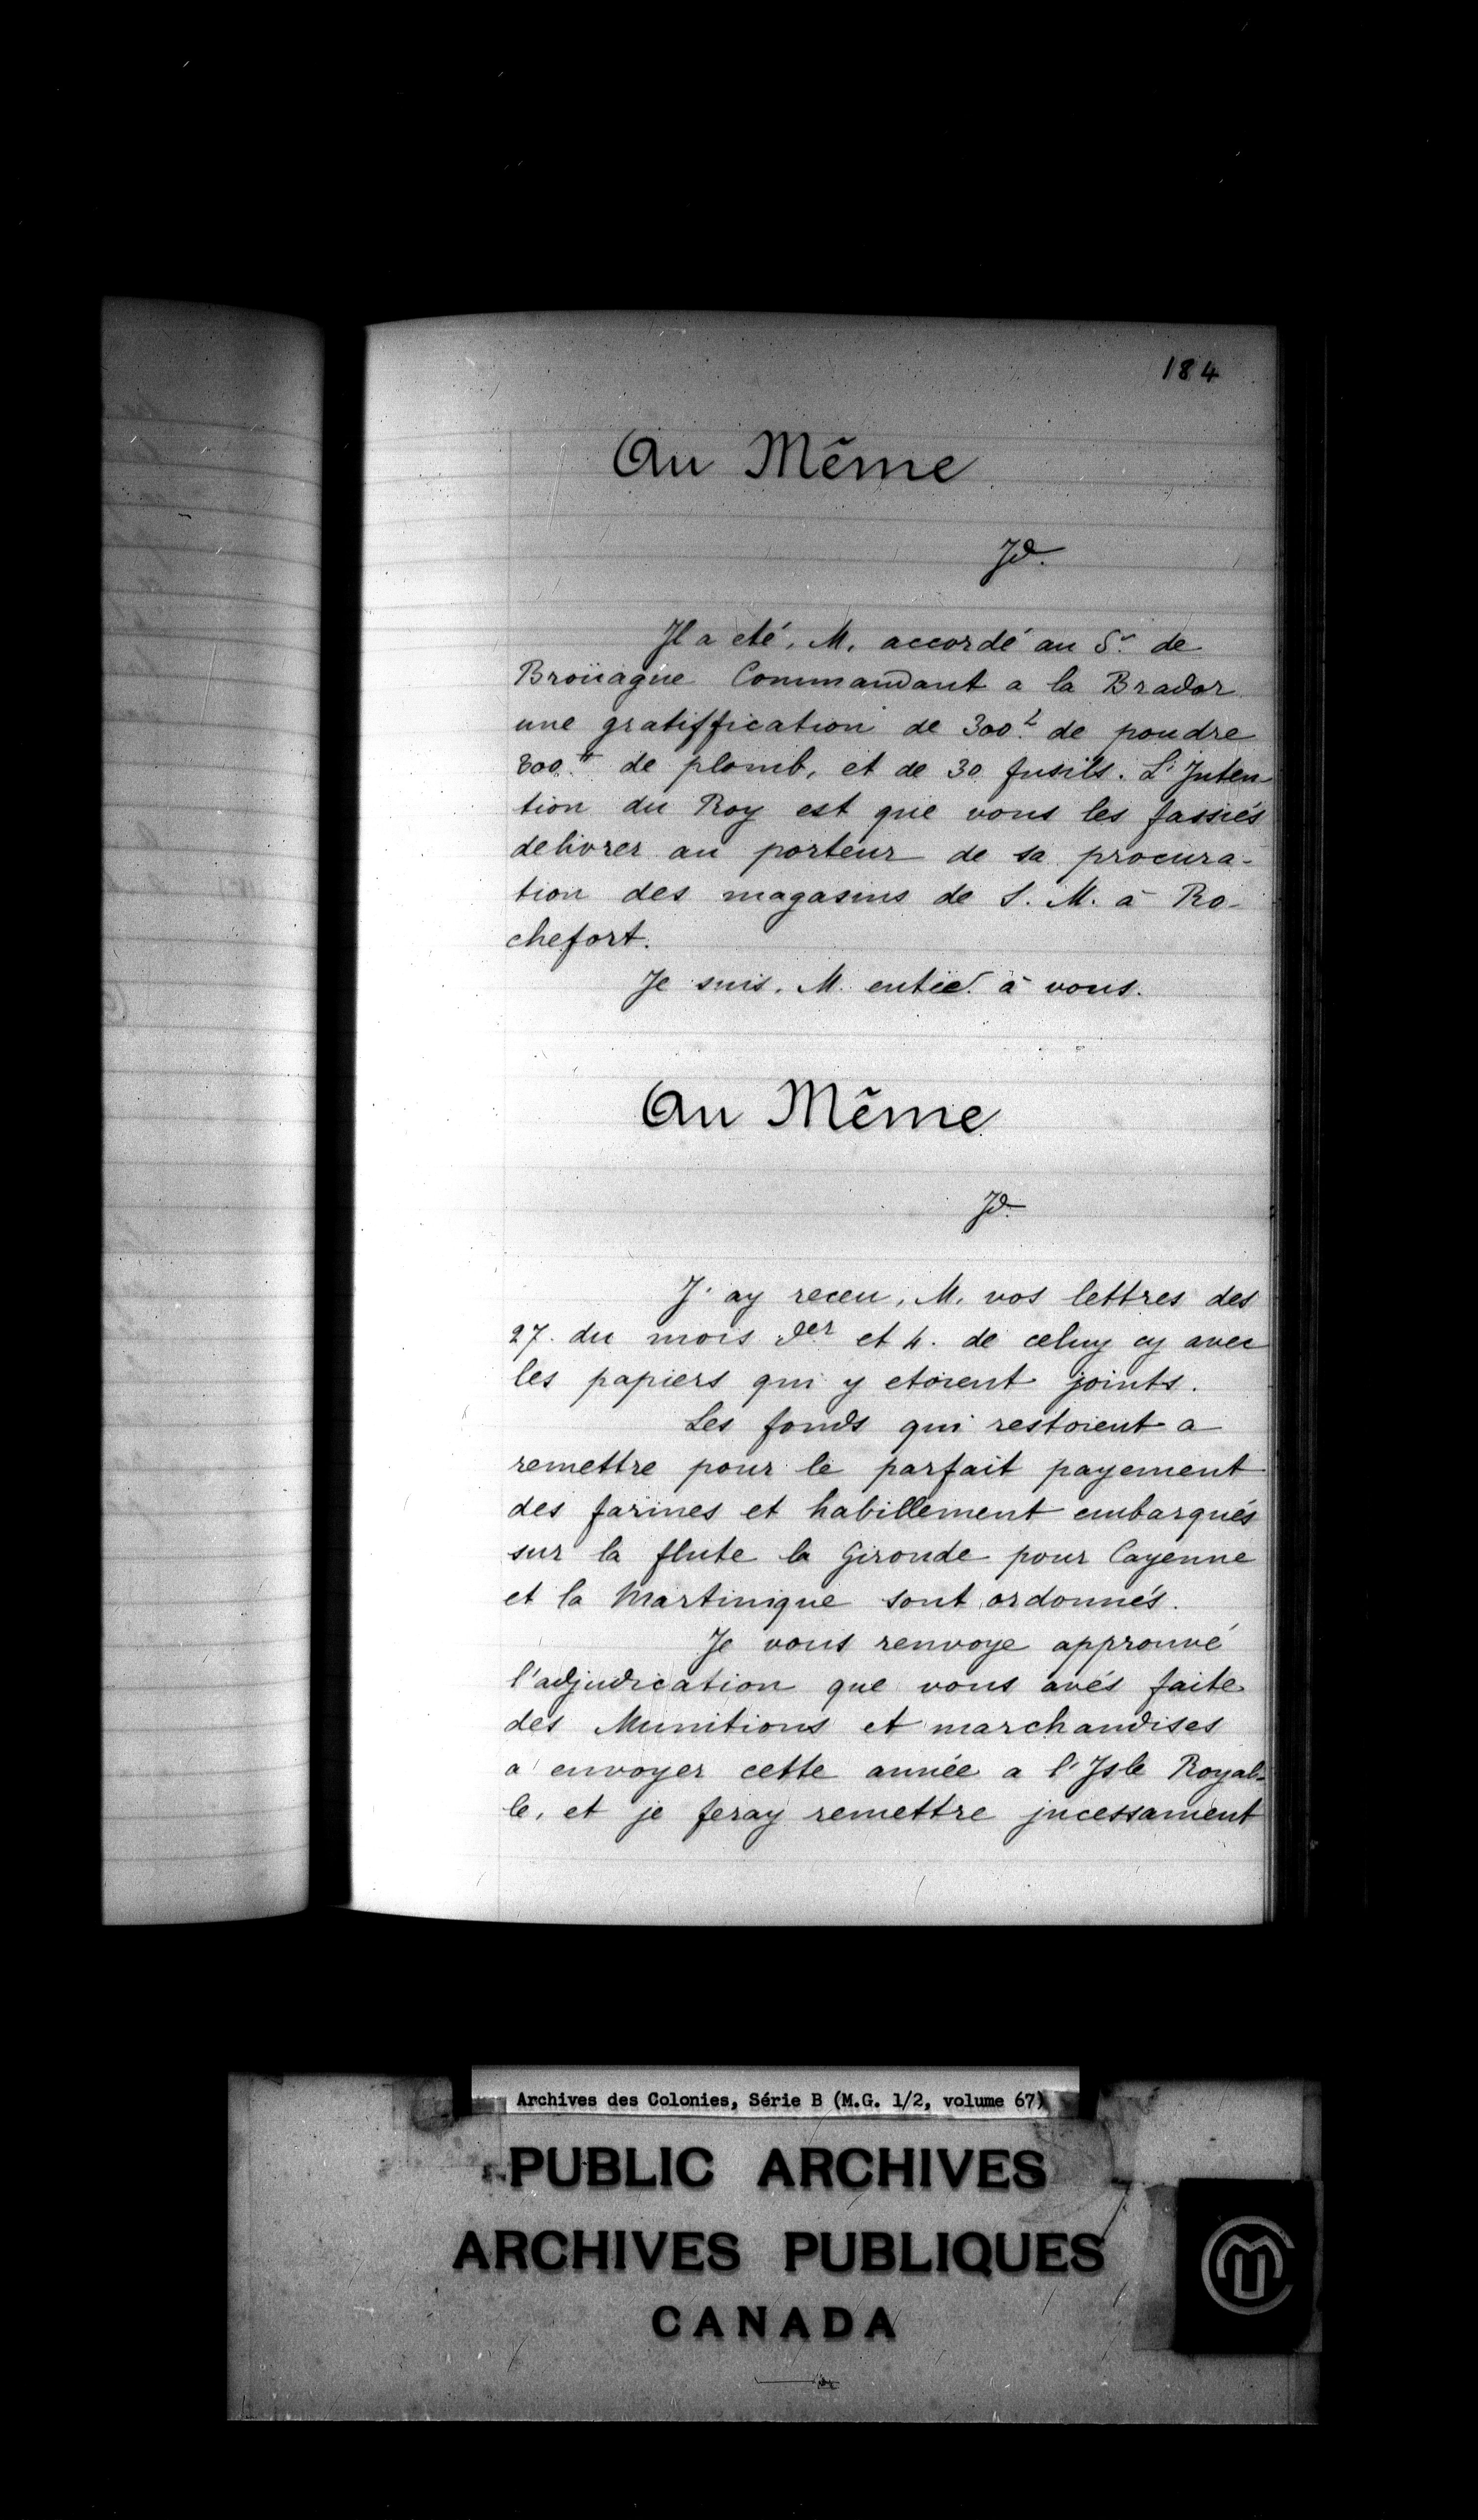 184
Au Même
Jd.
Il a eté, M. accordé au Sr. de
Broüague Commandant a la Brador
une gratiffication de 300.# de poudre
800.# de plomb, et de 30 fusils. L'Inten
tion du Roy est que vous les fassiés
delivrer au porteur de sa procura-
tion des magasins de S. M. à Ro-
chefort.
Je suis, M. entiet. à vous.
Au Même
Jd.
J'ay receu, M. vos lettres des
27. du mois der et 4. de celuy cy avec
les papiers qui y etoient joints.
Les fonds qui restoient a
remettre pour le parfait payement
des farines et habillement embarqués
sur la flute la Gironde pour Cayenne
et la Martinique sont ordonnés.
Je vous renvoye approuvé
l'adjudication que vous avés faite
des Munitions et marchandises
a envoyer cette année a l'Isle Royal-
le, et je feray remettre incessament
Archives des Colonies, Série B (M.G. 1/2, volume 67)
PUBLIC ARCHIVES
ARCHIVES PUBLIQUES
CANADA